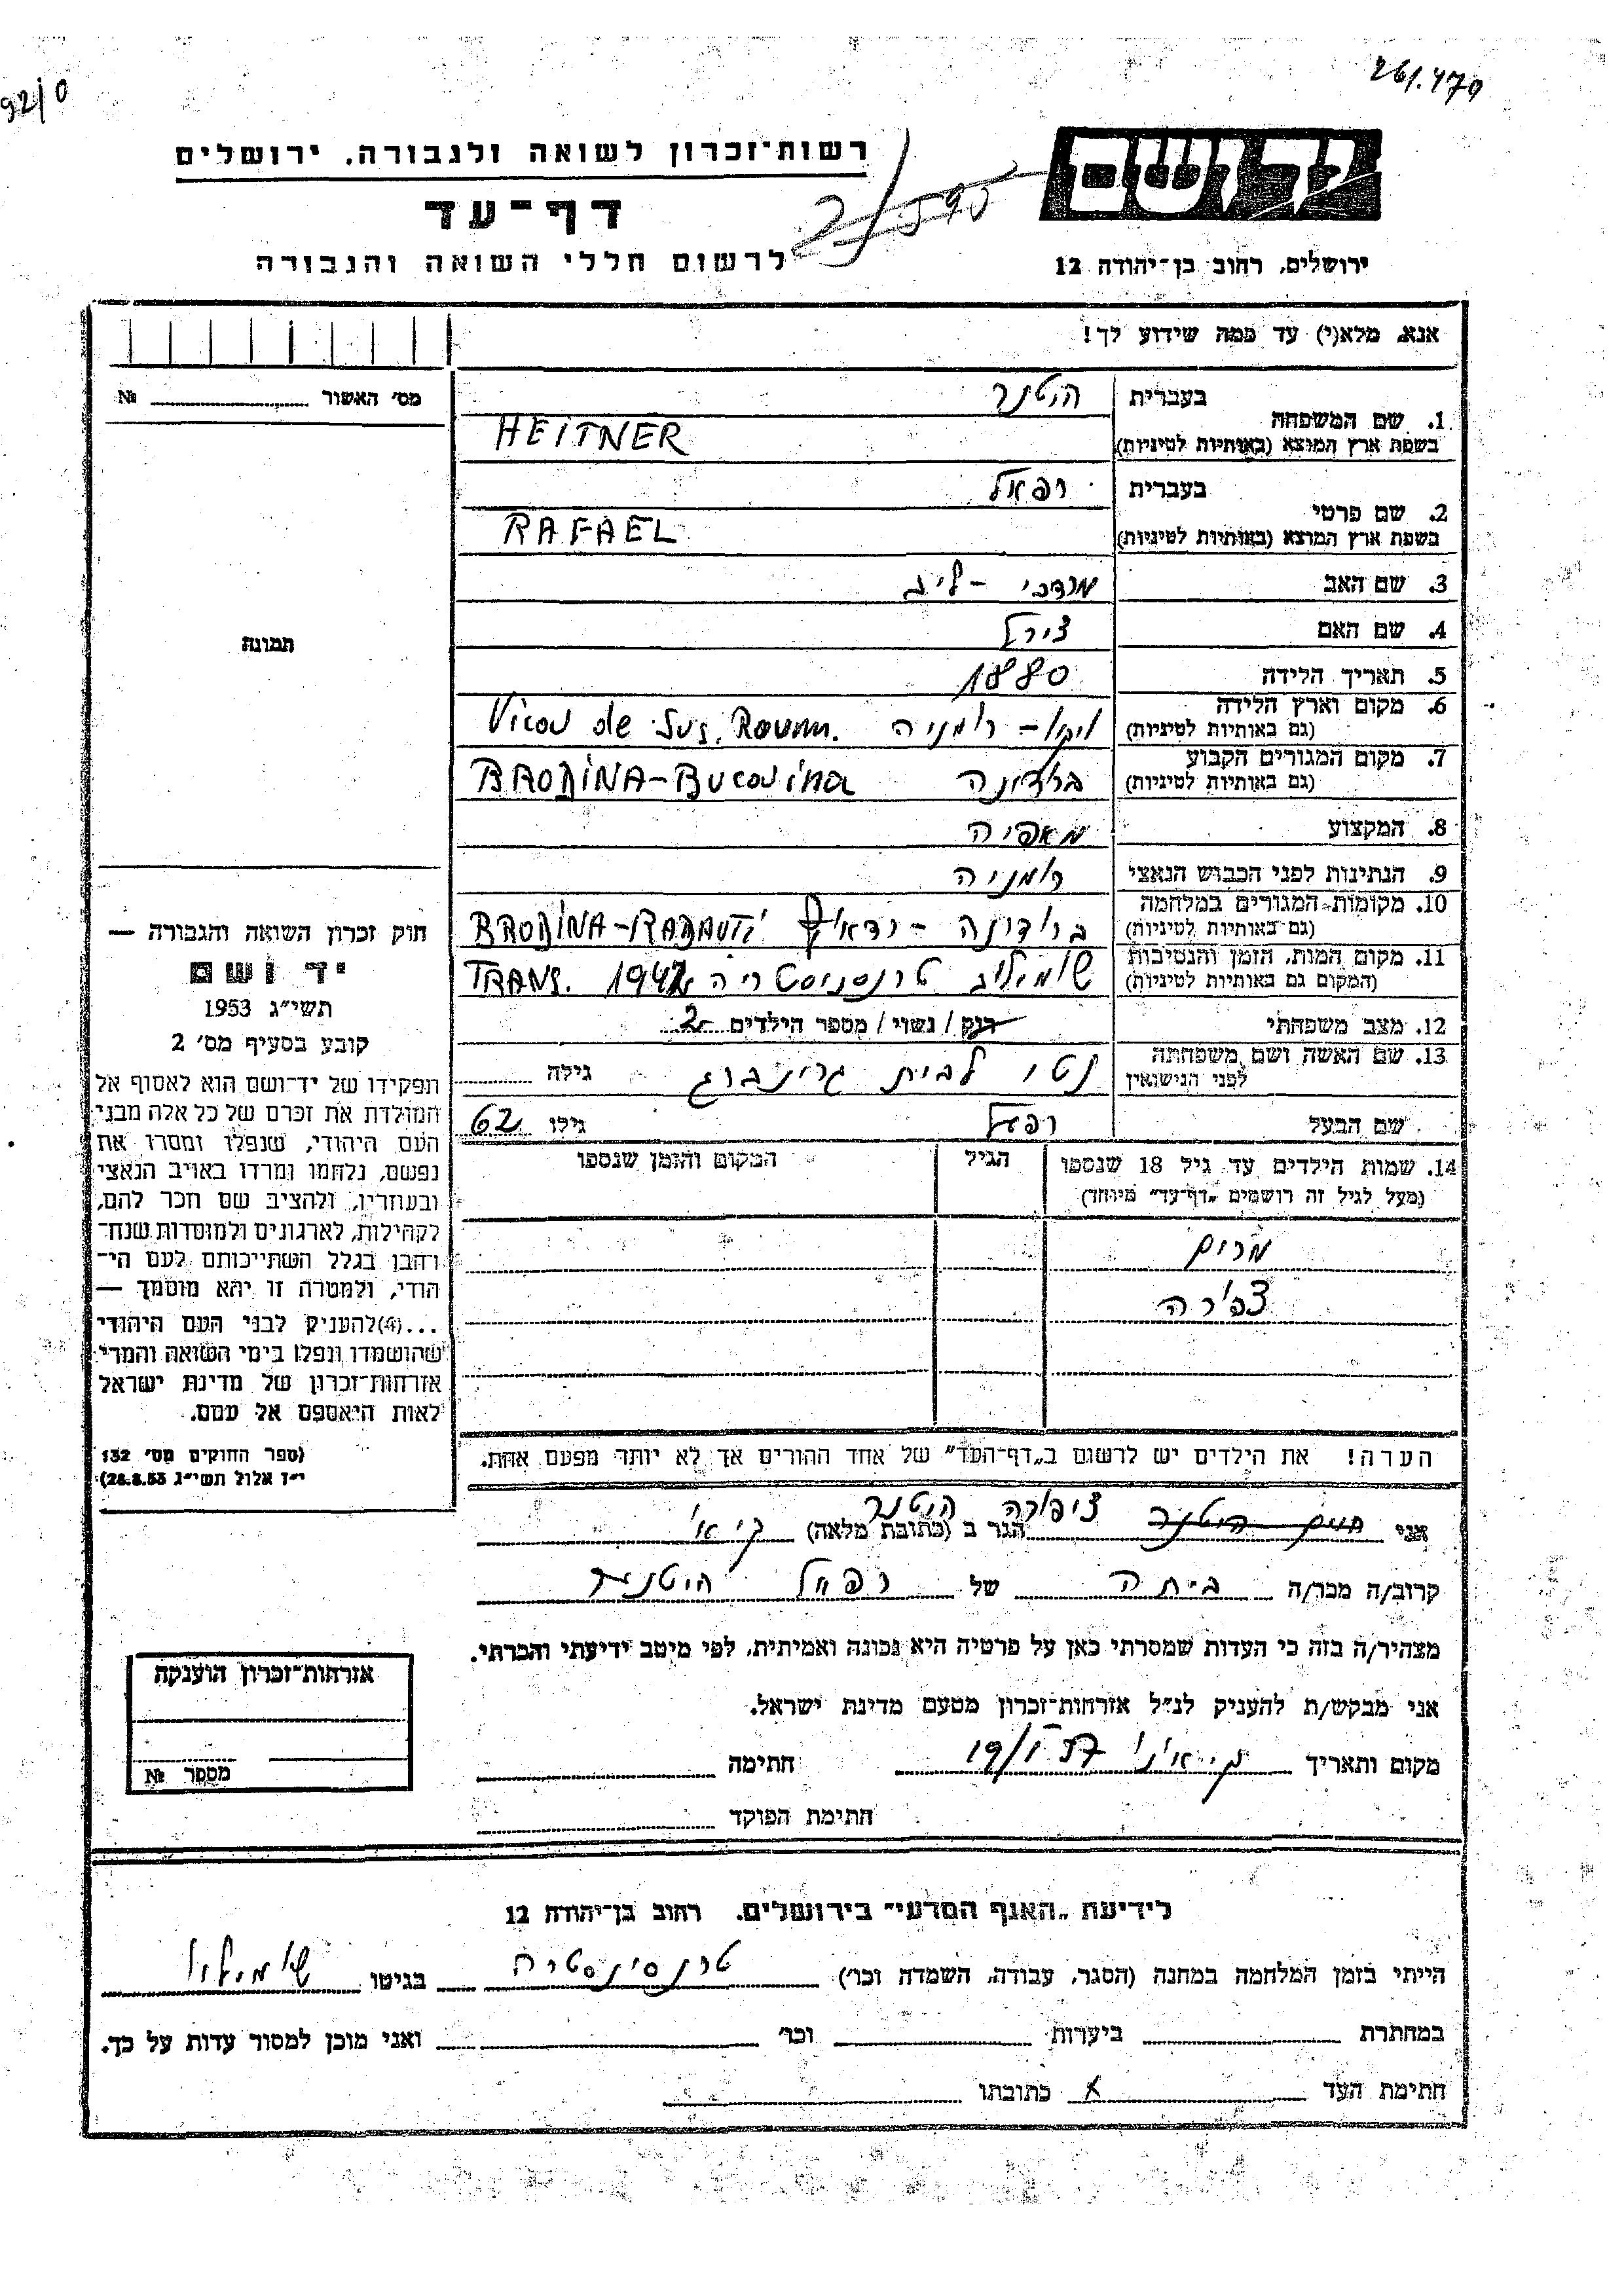 261.479
92/0
רשות־זכרון לשואה ולגבורה. ירושלים
יד ושם
דף־עד
2/590
לרשום חללי השואה והגבורה
ירושלים, רחוב בן־יהודה 12
אנא, מלא(י) עד כמה שידוע לך!
מס׳ האשור № 
1. שם המשפחה בעברית היטנר
בשפת ארץ המוצא (באותיות לטיניות) HEITNER
2. שם פרטי בעברית רפאל
בשפת ארץ המוצא (באותיות לטיניות) RAFAEL
3. שם האב מרדכי - ליב
4. שם האם צירל
5. תאריך הלידה 1880
6. מקום וארץ הלידה (גם באותיות לטיניות) ויקו - רומניה Vicou de Sus. Roumn.
7. מקום המגורים הקבוע (גם באותיות לטיניות) ברודינה BRODINA-Bucovina
8. המקצוע מאפיה
9. הנתינות לפני הכבוש הנאצי רומניה
10. מקומות המגורים במלחמה (גם באותיות לטיניות) ברודינה - BRODINA-RADAUTI
11. מקום המות, הזמן והנסיבות (המקום גם באותיות לטיניות) טרנסניסטריה 1942 TRANS.
12. מצב משפחתי רוק / נשוי / מספר הילדים 2
13. שם האשה ושם משפחתה לפני הנישואין נטי לבית גרינברג גילה
שם הבעל רפאל גילו 62
14. שמות הילדים עד גיל 18 שנספו (מעל לגיל זה רושמים „דף־עד״ מיוחד) הגיל המקום והזמן שנספו
מרים
צפירה
הערה! את הילדים יש לרשום ב„דף־העד״ של אחד ההורים אך לא יותר מפעם אחת.
תמונה
חוק זכרון השואה והגבורה —
יד ושם
תשי״ג 1953
קובע בסעיף מס׳ 2
תפקידו של יד־ושם הוא לאסוף אל
המולדת את זכרם של כל אלה מבני
העם היהודי, שנפלו ומסרו את
נפשם, נלחמו ומרדו באויב הנאצי
ובעוזריו, ולהציב שם וזכר להם,
לקהילות, לארגונים ולמוסדות שנח־
רהבו בגלל השתייכותם לעם הי־
הודי, ולמטרה זו יהא מוסמך —
...(4)להעניק לבני העם היהודי
שהושמדו ונפלו בימי השואה והמרי
אזרחות־זכרון של מדינת ישראל
לאות היאספם אל עמם.
(ספר החוקים מס׳ 132
י״ז אלול תשי״ג 28.8.53)
אני חיים היטנר ציפורה היטנר הגר ב (כתובת מלאה)
קרוב/ה מכר/ה ביתה של רפאל היטנר
מצהיר/ה בזה כי העדות שמסרתי כאן על פרטיה היא נכונה ואמיתית, לפי מיטב ידיעתי והכרתי.
אני מבקש/ת להעניק לנ״ל אזרחות־זכרון מטעם מדינת ישראל.
מקום ותאריך 19/1 57 חתימה
חתימת הפוקד
אזרחות־זכרון הוענקה
מספר №
לידיעת „האגף המדעי״ בירושלים. רחוב בן־יהודה 12
הייתי בזמן המלחמה במחנה (הסגר, עבודה, השמדה וכו׳) טרנסינסטריה בגיטו
במחתרת ביערות וכו׳ ואני מוכן למסור עדות על כך.
חתימת העד x כתובתו